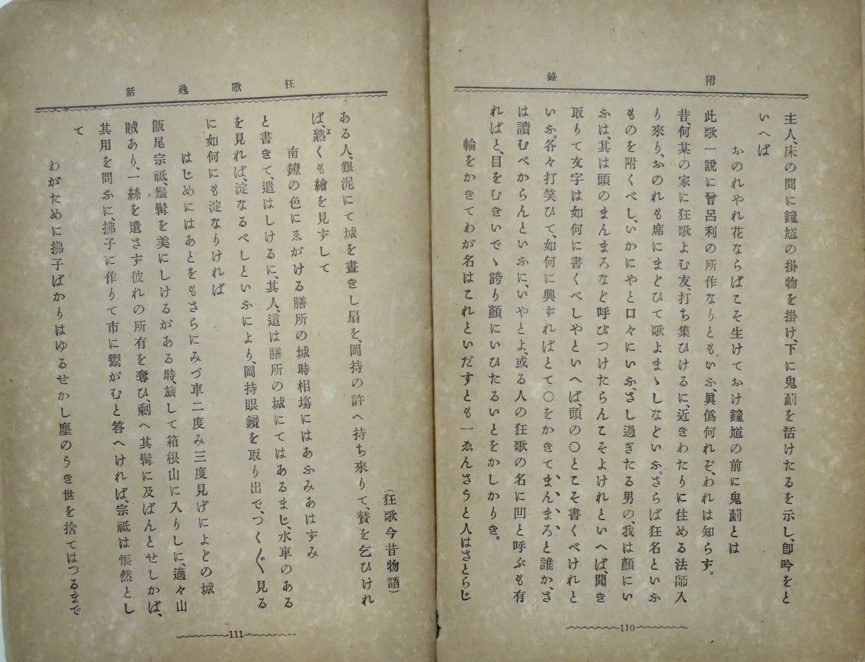 附錄
主人、床の間に鐘馗の掛物を掛け、下に鬼薊を活けたるを示し、卽吟をと
いへば
おのれやれ花ならばこそ生けておけ鐘馗の前に鬼薊とは
此歌一說に曾呂利の所作なりともいふ、眞僞何れぞ、われは知らず。
昔、何某の家に狂歌よむ友、打ち集ひけるに、近きわたりに住める法師入
り來り、おのれも席にまどひて歌よまゝしなどいふ。さらば狂名といふ
ものを附くべし、いかにやと口々にいふ、さし過ぎたる男の、我は顏にい
ふは、其は頭のまんまろなど呼びつけたらんこそよけれといへば、聞き
取りて文字は如何に書くべしやといへば、頭の〇とこそ書くべけれと
いふ。各々打笑ひて、如何に興ずればとて〇をかきてまんまろと誰か、さ
は讀むべからんといふに、いやとよ、或る人の狂歌の名に凹と呼ぶも有
ればと、目をむきいでゝ誇り顏にいひたるいとをかしかりき。
輪をかきてわが名はこれといだすとも一ゑんさうと人はさとらじ
110
狂歌逸話
(狂歌今昔物語)
ある人、銀泥にて城を畫きし扇を、岡持の許へ持ち來りて、賛を乞ひけれ
ば、熟くも繪を見ずして
南鐐の色にゑがける膳所の城時相場にはあふみあはずみ
と書きて、遣はしけるに、其人、這は膳所の城にてはあるまじ、水車のある
を見れば、淀なるべしといふにより、岡持眼鏡を取り出で、つく〲見る
に如何にも淀なりければ
はじめにはあとをもさらにみづ車二度み三度見げによどの城
飯尾宗祇、鬚髯を美にしけるがある時、旅して箱根山に入りしに、適々山
賊あり、一絲を遺さず彼れの所有を奪ひ剩へ其髯に及ばんとせしかば、
其用を問ふに、拂子に作りて市に鬻がむと答へければ、宗祇は悵然とし
て
わがために拂子ばかりはゆるせかし塵のうき世を捨てはつるまで
111